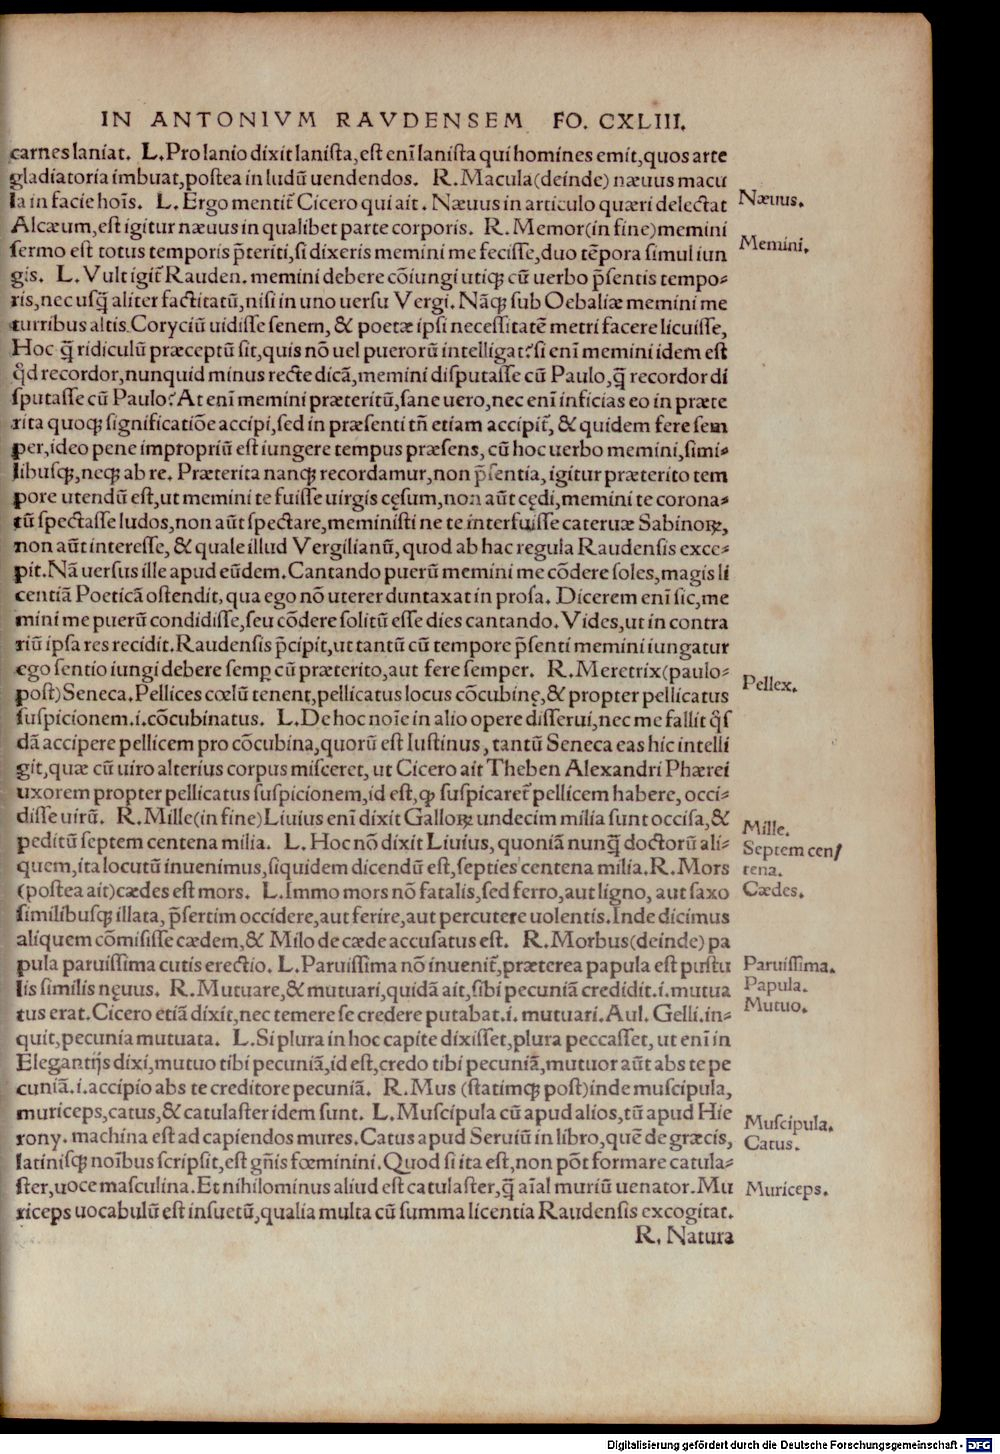 IN ANTONIVM RAVDENSEM FO. CXLIII.
carnes laniat. L. Pro lanio dixit lanista, est eni᷄ lanista qui homines emit, quos arte
gladiatoria imbuat, postea in ludū uendendos. R. Macula (deinde) næuus macu
la in facie hoı̄s. L. Ergo mentit᷑ Cicero qui ait. Næuus in articulo quæri delectat
Alcæum, est igitur næuus in qualibet parte corporis. R. Memor (in fine) memini
sermo est totus temporis p̄teriti, si dixeris memini me fecisse, duo tēpora simul iun
gis. L. Vult igit᷑ Rauden. memini debere cōiungi utiqꝫ cū uerbo p̄sentis tempo-
ris, nec usq̄ aliter factitatū, nisi in uno uersu Vergi. Nāqꝫ sub Oebaliæ memini me
turribus altis. Coryciū uidisse senem, & poetæ ipsi necessitatē metri facere licuisse,
Hoc q̄ ridiculū præceptū sit, quis nō uel puerorū intelligat? si enī memini idem est
qd̄ recordor, nunquid minus recte dicā, memini disputasse cū Paulo, q̄ recordor di
sputasse cū Paulo? At enī memini præteritū, sane uero, nec enī inficias eo in præte
rita quoqꝫ significatiōe accipi, sed in præsenti tn̄ etiam accipit᷑, & quidem fere sem
per, ideo pene impropriū est iungere tempus præsens, cū hoc uerbo memini, simi-
libusqꝫ, neqꝫ ab re. Præterita nanqꝫ recordamur, non p̄sentia, igitur præterito tem
pore utendū est, ut memini te fuisse uirgis cęsum, non aūt cędi, memini te corona-
tū spectasse ludos, non aūt spectare, meministi ne te interfuisse cateruæ Sabinoꝝ,
non aūt interesse, & quale illud Vergilianū, quod ab hac regula Raudensis exce-
pit. Nā uersus ille apud eūdem. Cantando puerū memini me cōdere soles, magis li
centiā Poeticā ostendit, qua ego nō uterer duntaxat in prosa. Dicerem enī sic, me
mini me puerū condidisse, seu cōdere solitū esse dies cantando. Vides, ut in contra
riū ipsa res recidit. Raudensis p̄cipit, ut tantū cū tempore p̄senti memini iungatur
ego sentio iungi debere semꝑ cū præterito, aut fere semper. R. Meretrix (paulo-
post) Seneca. Pellices cœlū tenent, pellicatus locus cōcubinę, & propter pellicatus
suspicionem .i. cōcubinatus. L. De hoc noı̄e in alio opere disserui, nec me fallit q̄s
dā accipere pellicem pro cōcubina, quorū est Iustinus, tantū Seneca eas hic intelli
git, quæ cū uiro alterius corpus misceret, ut Cicero ait Theben Alexandri Phærei
uxorem propter pellicatus suspicionem, id est, ꝙ suspicaret᷑ pellicem habere, occi-
disse uirū. R. Mille (in fine) Liuius enī dixit Galloꝝ undecim milia sunt occisa, &
peditū septem centena milia. L. Hoc nō dixit Liuius, quoniā nunq̄ doctorū ali-
quem, ita locutū inuenimus, siquidem dicendū est, septies centena milia. R. Mors
(postea ait) cædes est mors. L. Immo mors nō fatalis, sed ferro, aut ligno, aut saxo
similibusqꝫ illata, p̄sertim occidere, aut ferire, aut percutere uolentis. Inde dicimus
aliquem cōmisisse cædem, & Milo de cæde accusatus est. R. Morbus (deinde) pa
pula paruissima cutis erectio. L. Paruissima nō inuenit᷑, præterea papula est pustu
lis similis nęuus. R. Mutuare, & mutuari, quidā ait, sibi pecuniā credidit .i. mutua
tus erat. Cicero etiā dixit, nec temere se credere putabat .i. mutuari. Aul. Gelli. in-
quit, pecunia mutuata. L. Si plura in hoc capite dixisset, plura peccasset, ut enī in
Elegantijs dixi, mutuo tibi pecuniā, id est, credo tibi pecuniā, mutuor aūt abs te pe
cuniā .i. accipio abs te creditore pecuniā. R. Mus (statimqꝫ post) inde muscipula,
muriceps, catus, & catulaster idem sunt. L. Muscipula cū apud alios, tū apud Hie
rony. machina est ad capiendos mures. Catus apud Seruiū in libro, quē de græcis,
latinisqꝫ noı̄bus scripsit, est gn̄is fœminini. Quod si ita est, non pōt formare catula-
ster, uoce masculina. Et nihilominus aliud est catulaster, q̄ aı̄al muriū uenator. Mu
riceps uocabulū est insuetū, qualia multa cū summa licentia Raudensis excogitat.
R. Natura
Næuus.
Memini.
Pellex.
Mille.
Septem cen/
tena.
Cædes.
Paruissima.
Papula.
Mutuo.
Muscipula.
Catus.
Muriceps.
Digitalisierung gefördert durch die Deutsche Forschungsgemeinschaft - DFG